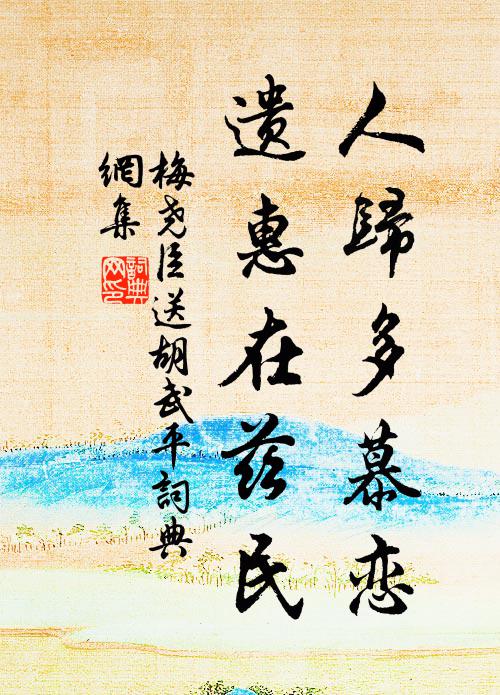 人歸多慕恋
遗惠在兹民
梅尧臣送胡武平詞典
網集
詞典
网印